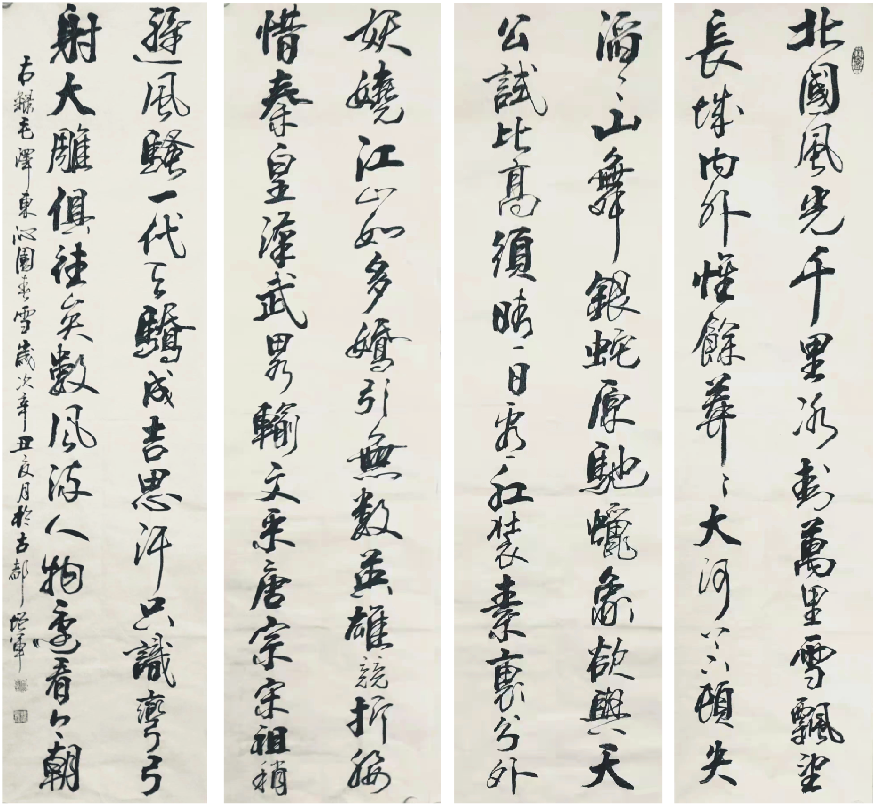 北國風光千里冰封萬里雪飄望
長城內外惟餘莽〻大河上下頓失
滔〻山舞銀蛇原馳蠟象欲與天
公試比高須晴日看紅裝素裹分外
妖嬈江山如多嬌引無數英雄競折腰
惜秦皇漢武畧輸文采唐宗宋祖稍
遜風騷一代天驕成吉思汗只識彎弓
射大雕俱往矣數風流人物還看今朝
右錄毛澤東沁園春雪歲次辛丑夏月於古都增軍